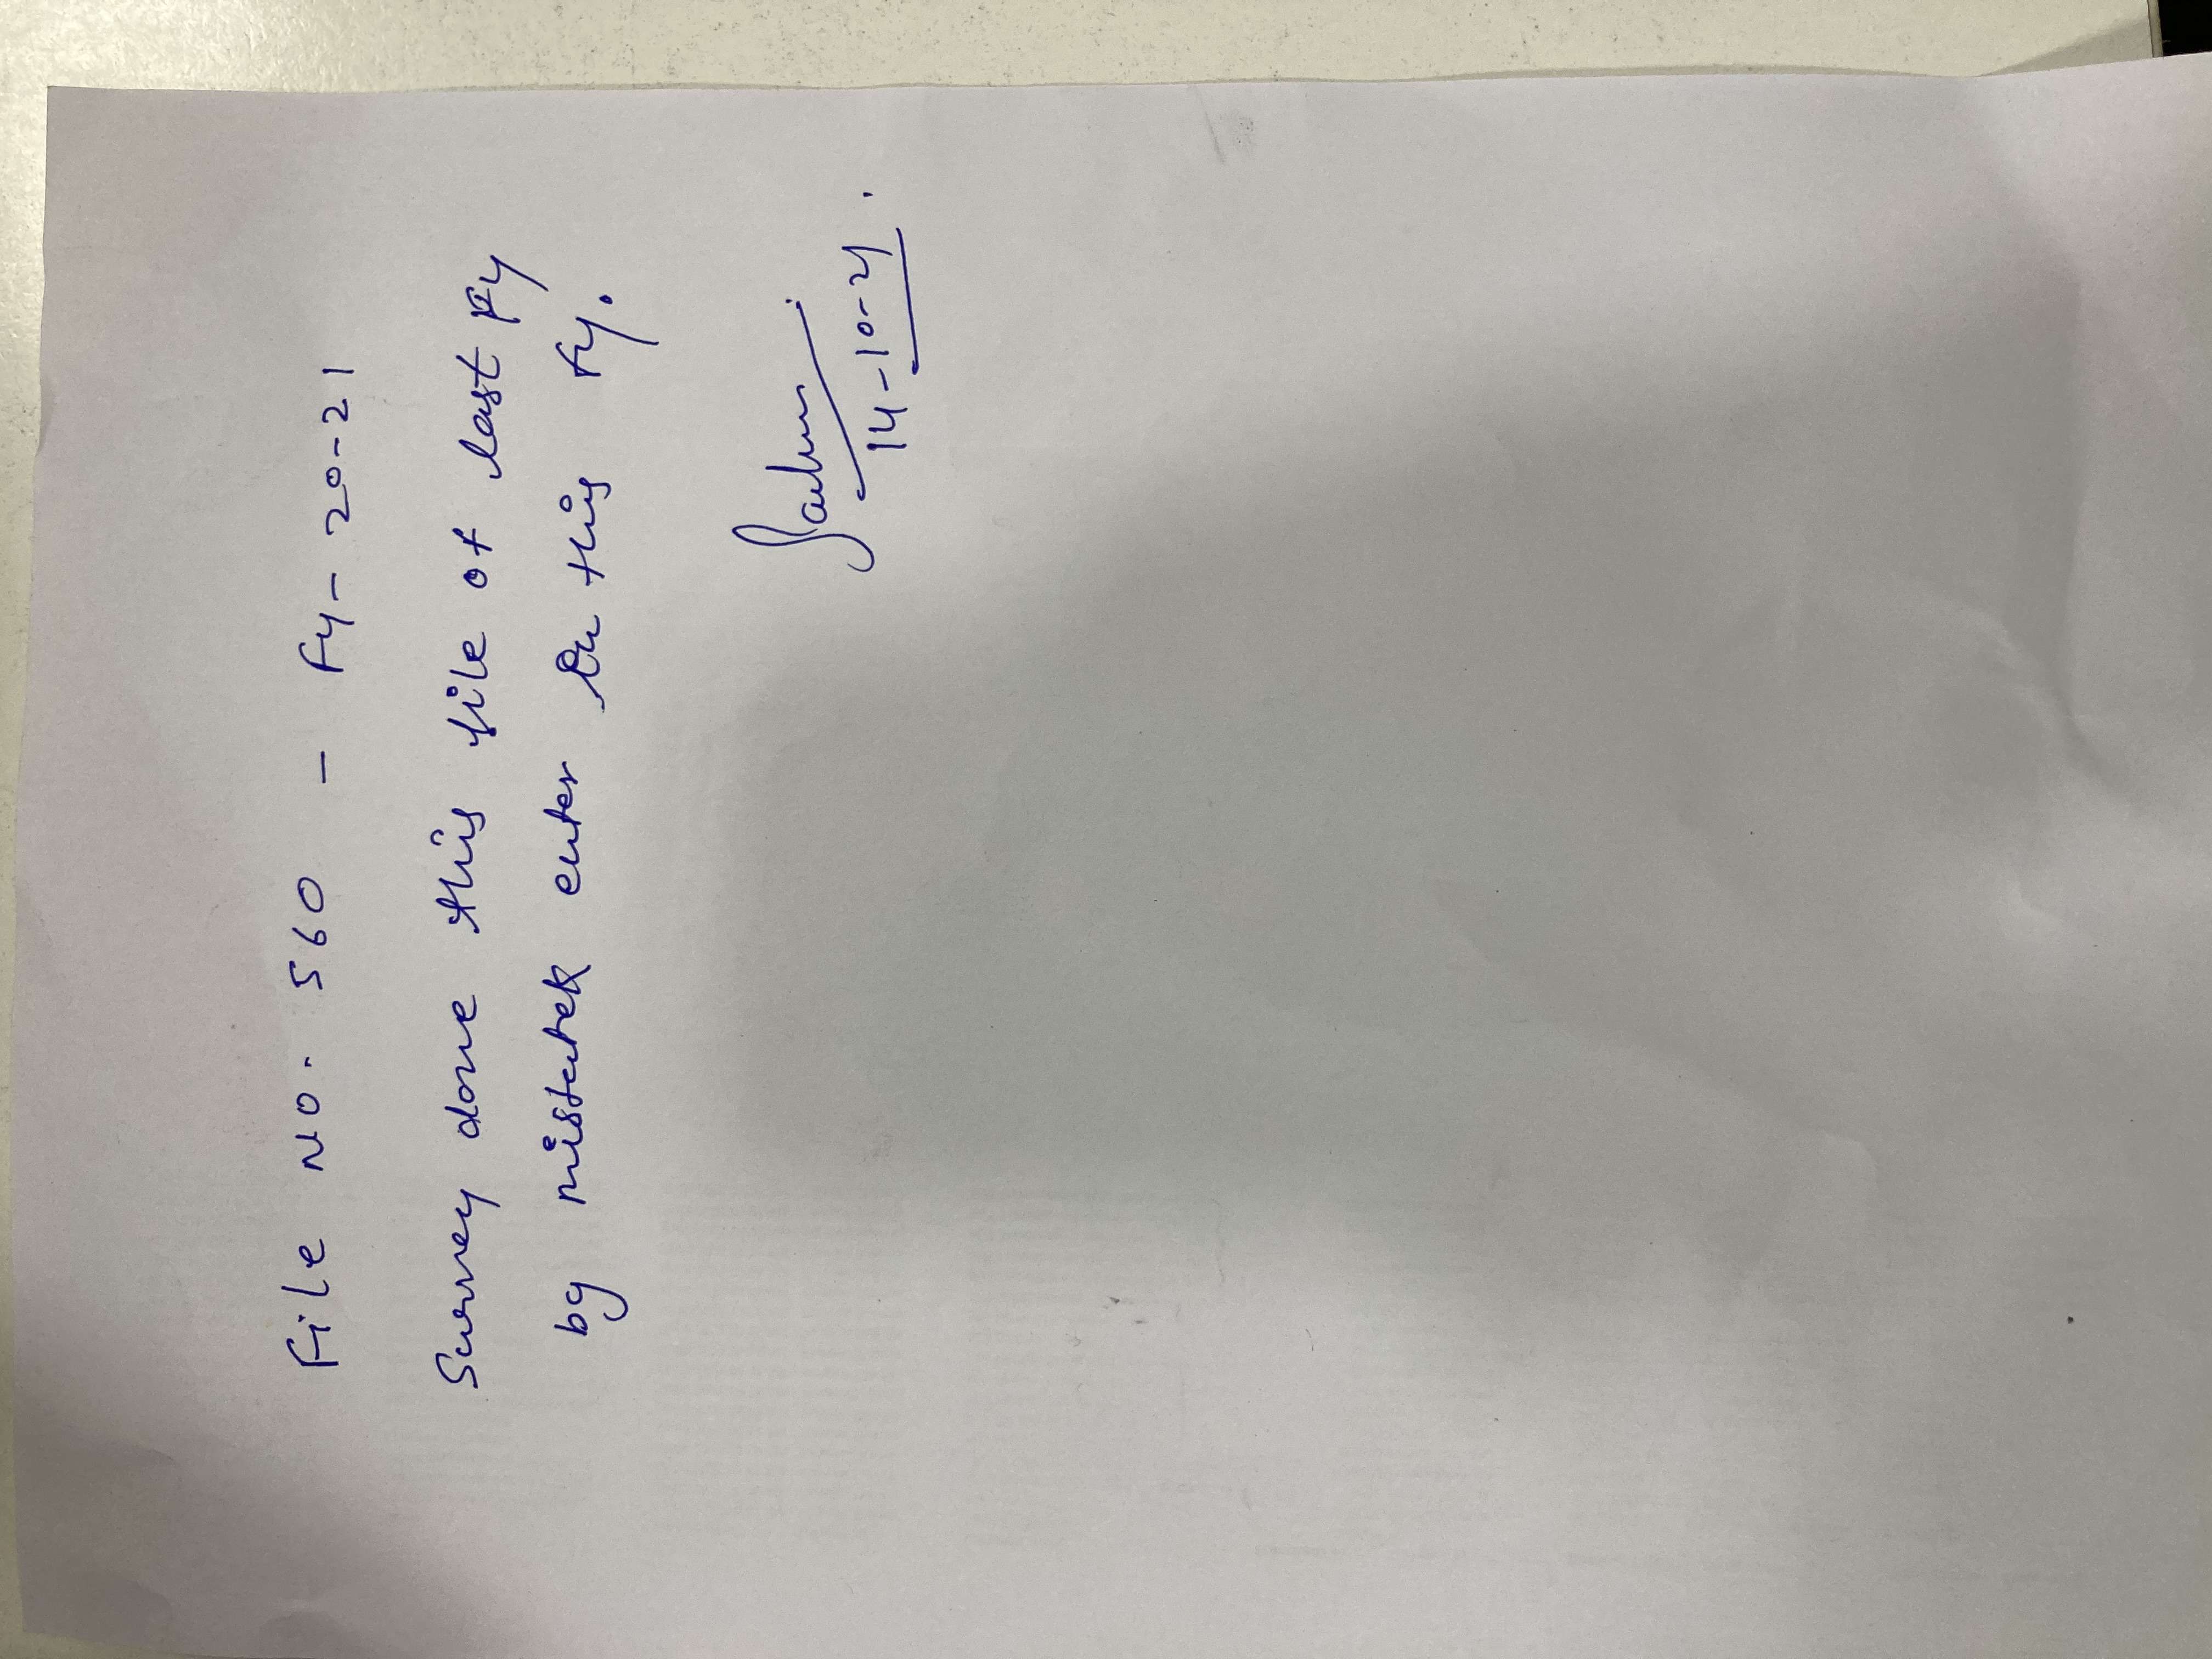 File No. 560 - Fy - 20-21
Survey done this file of last Fy
by mistetek enter in this Fy.
14-10-21